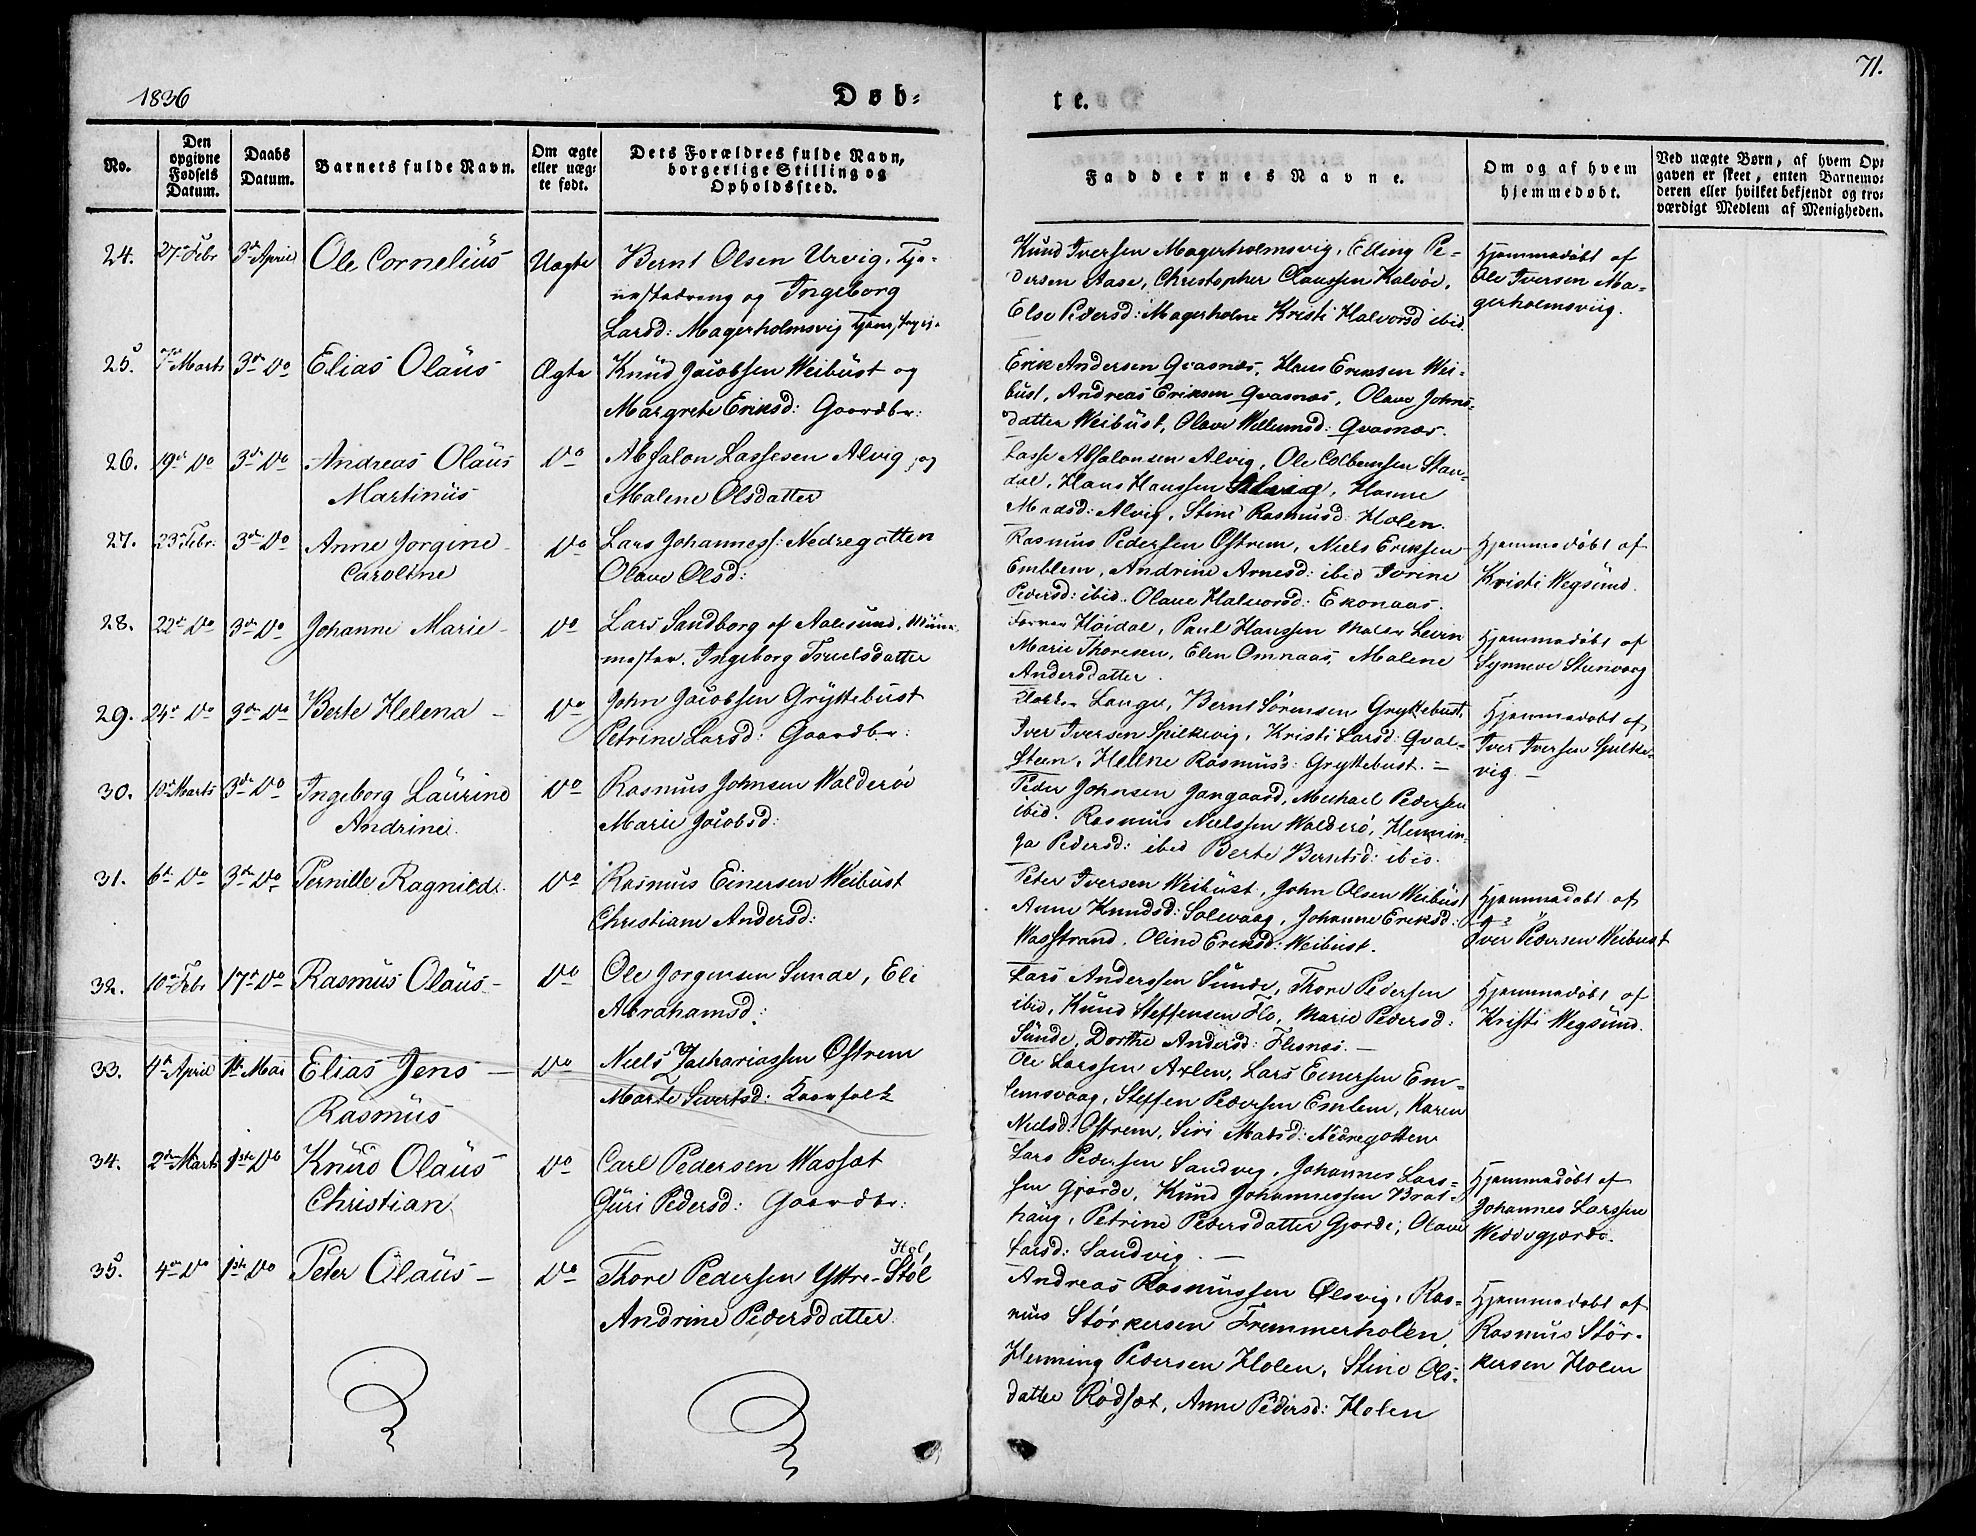 1836
Døb-
te.
71.
No.
Den opgivne Fødsels Datum.
Daabs Datum.
Barnets fulde Navn.
Om ægte eller uægte født.
Dets Forældres fulde Navn, borgerlige Stilling og Opholdssted.
Faddernes Navne.
Om og af hvem hjemmedøbt.
Ved uægte Børn, af hvem Opgaven er skeet, enten Barnemoderen eller hvilket bekjendt og troværdigt Medlem af Menigheden.
24. 27 Febr 3die April Ole Cornelius Uægte Bernt Olsen Urvig, Tje-
nestedreng og Ingeborg
Larsd: Magerholmsvig
Knud Iversen Magerholmsvig, Elling Pe-
dersen Aase, Christopher Claussen Kalvøe,
Else Pedersd: Magerholm Kristi Halvorsd ibid
Hjemmedøbt af
Ole Iversen Ma-
gerholmsviig.
25. 7de Marts 3die Do Elias Olaüs Ægte Knüd Jacobsen Weibüst og
Margrete Eriksd: Gaardbr:
Erik Andersen Qvasnæs, Hans Eriksen Wei-
bust, Andreas Eriksen Qvasnæs, Olave Johns-
datter Weibüst, Olave Willumsd: Qvasnæs.
26. 19de Do 3die Do Andreas Olaüs
Martinüs
Do Absalon Lassesen Alvig, og
Malene Olsdatter
Lasse Absalonsen Alvig, Ole Colbensen Stan-
dal, Hans Hanssen Alvig, Hanne
Madsd: Alvig, Stine Rasmusd: Holen.
27. 23 Febr. 3die Do Anne Jorgine
Caroline
Do Lars Johanness: Nedregotten
Olave Olsd:
Rasmus Pedersen Østrem, Niels Eriksen
Emblem, Andrine Arnesd: ibid Ivrine
Pedersd: ibid. Olave Halvorsd: Ekonaas.
Hjemmedøbt af
Kristi Wegsünd.
28. 22de Do 3die Do Johanne Marie Do Lars Sandborg af Aalesund,
mester. Ingeborg Truelsdatter
Høidal, Paul Hanssen Levin
Marie Thoresen, Elen Omnaas, Malene
Andersdatter.
Hjemmedøbt af
Synneve Steenvaag
29. 24de Do 3die Do Berte Helena Do John Jacobsen Gryttebust
Petrine Larsd: Gaardbr:
Lange, Bernt Sørensen Gryttebust,
Iver Iversen Spilkevig, Kristi Larsd: Qval-
Steen, Helene Rasmusd: Gryttebust.
Hjemmedøbt af,
Iver Iversen Spilke-
vig.
30. 10de Marts 3die Do Ingeborg Laürine
Andrine.
Do Rasmus Johnsen Walderøe
Marie Jacobsd:
Peder Johnsen Gangaard, Michael Pedersen
ibid. Rasmus Nielssen Walderö, Hennin-
ga Pedersd: ibid Berte Berntsd: ibid.
31. 6te Do 3die Do Pernille Ragnilde. Do Rasmus Einersen Weibust
Christiane Andersd:
Peter Iversen Weibüst, John Olsen Weibüst
Anne Knudsd: Solevaag, Johanne Eriksd:
Wasstrand, Oline Eriksd: Weibust.
Hjemmedøbt af
Iver Pedersen Weibust
32. 10de Febr 17de Do Rasmus Olaüs Do Ole Jorgensen Sunde, Eli
Abrahamsd:
Lars Anderssen Sünde, Thore Pedersen
ibid, Knud Steffensen Flo, Marie Pedersd:
Sünde, Dorthe Andersd: Flesnæs.
Hjemmedøbt af
Kristi Wegsünd.
33. 4de April 1ste Mai Elias Jens
Rasmüs
Do Niels Zachariassen Østrem
Marte Sivertsd: Kaarfolk
Ole Larssen Axlen, Lars Einersen Em-
lemsvaag, Steffen Pedersen Emlem, Karen
Nielsd: Østrem, Siri Matsd: Nedregotten
34. 2den Marts 1ste Do Knüd Olaüs
Christian
Do Carl Pedersen Wassæt
Güri Pedersd: Gaardbr:
Lars Pedersen Sandvig, Johannes Lars-
sen Gjørde, Knud Johannessen Brat-
haüg, Petrine Pedersdatter Gjørde, Olave
Larsd: Sandvig.
Hjemmedøbt af
Johannes Larssen
Weddegjærde.
35. 4de Do 1ste Do Peter Olaüs Do Thore Pedersen Yttre-Støl
Hol
Andrine Pedersdatter.
Andreas Rasmussen Ølsvig, Ras-
mus Størkersen Fremmerholen,
Henning Pedersen Holen, Stine Ols-
datter Rødsæt, Anne Pedersd: Holen
Hjemmedøbt af
Rasmus Stør-
kersen Holen